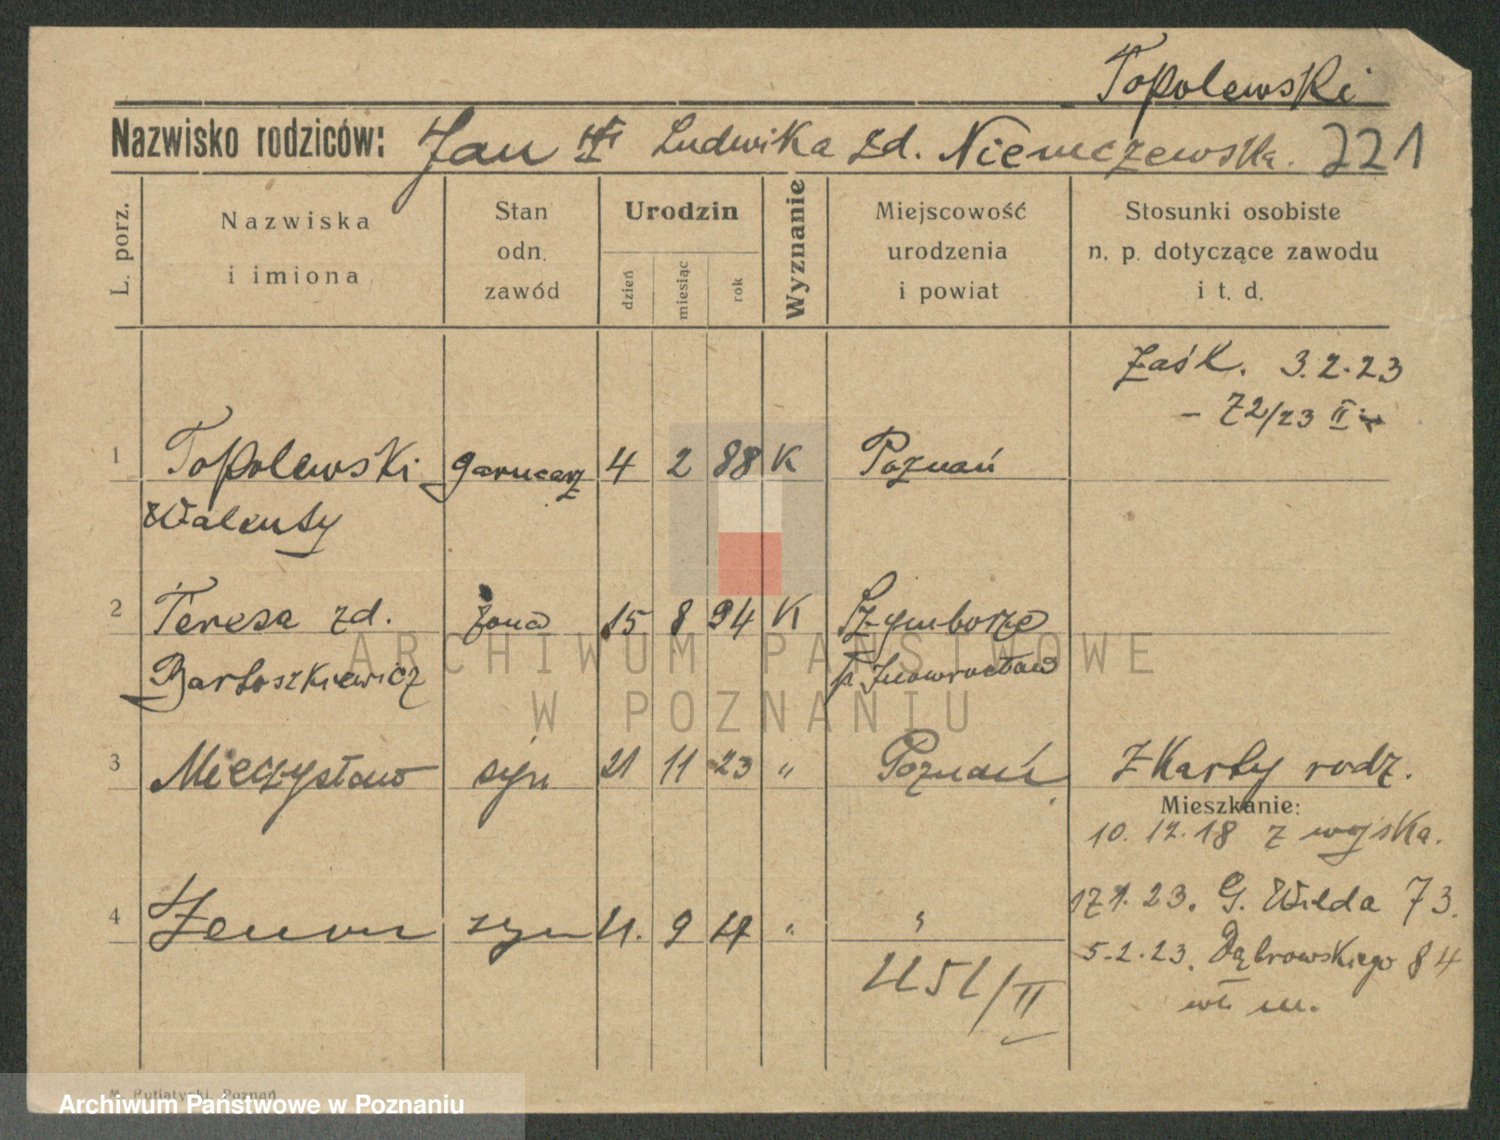 Topolewski
Nazwisko rodziców: Jan Ludwika zd. Niemczewska. 221
L. porz.
Nazwiska
i imiona
Stan
odn.
zawód
Urodzin
dzień
miesiąc
rok
Wyznanie
Miejscowość
urodzenia
i powiat
Stosunki osobiste
n. p. dotyczące zawodu
i t. d.
Zaśk. 3.2.23
- 72/23 II
1 Topolewski garncarz 4 2 88 K Poznań
Walenty
2 Teresa zd. żona 15 8 94 K Szymborze
Bartoszkiewicz p. Inowrocław
3 Mieczysław syn 21 11 23 " Poznań Z Karty rodz.
Mieszkanie:
10.12.18 z wojska.
4 Zenon syn 9 "
17.1.23. G. Wilda 73.
5.2.23. Dąbrowskiego 84
wł. m.
M. Putiatycki, Poznań
ARCHIWUM PAŃSTWOWE
W POZNANIU
Archiwum Państwowe w Poznaniu